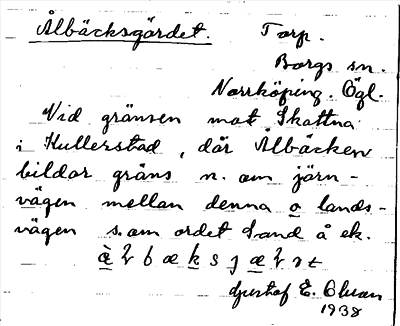 Ålbäcksgärdet. Torp.
Borgs sn.
Norrköping. Ögl.
Vid gränsen mot Skattna
i Kullerstad, där Ålbäcken
bildar gräns n. om järn-
vägen mellan denna o lands-
vägen s. om ordet Sand å ek.
Gustaf E. Olsson
1938